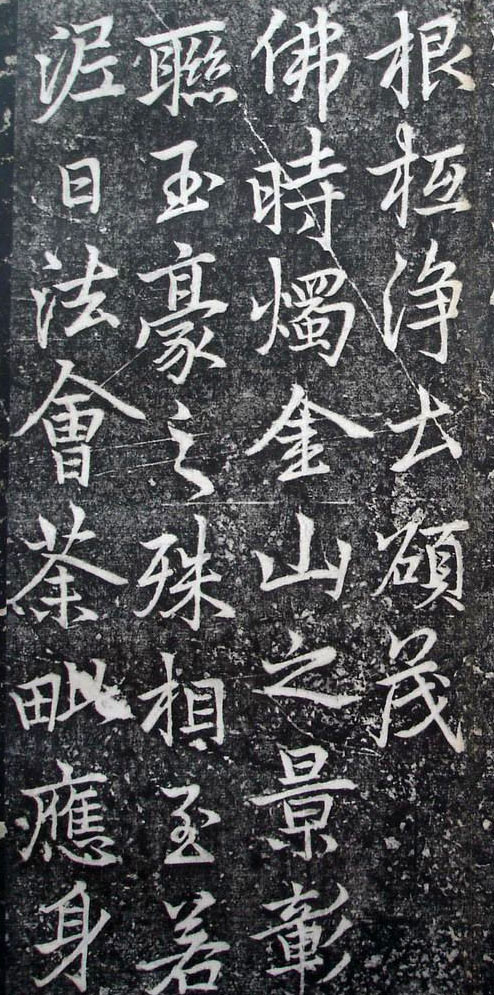 根柢浄土碩茂
佛時燭金山之景彰
聯玉豪之殊相至若
泥日法會荼毗應身